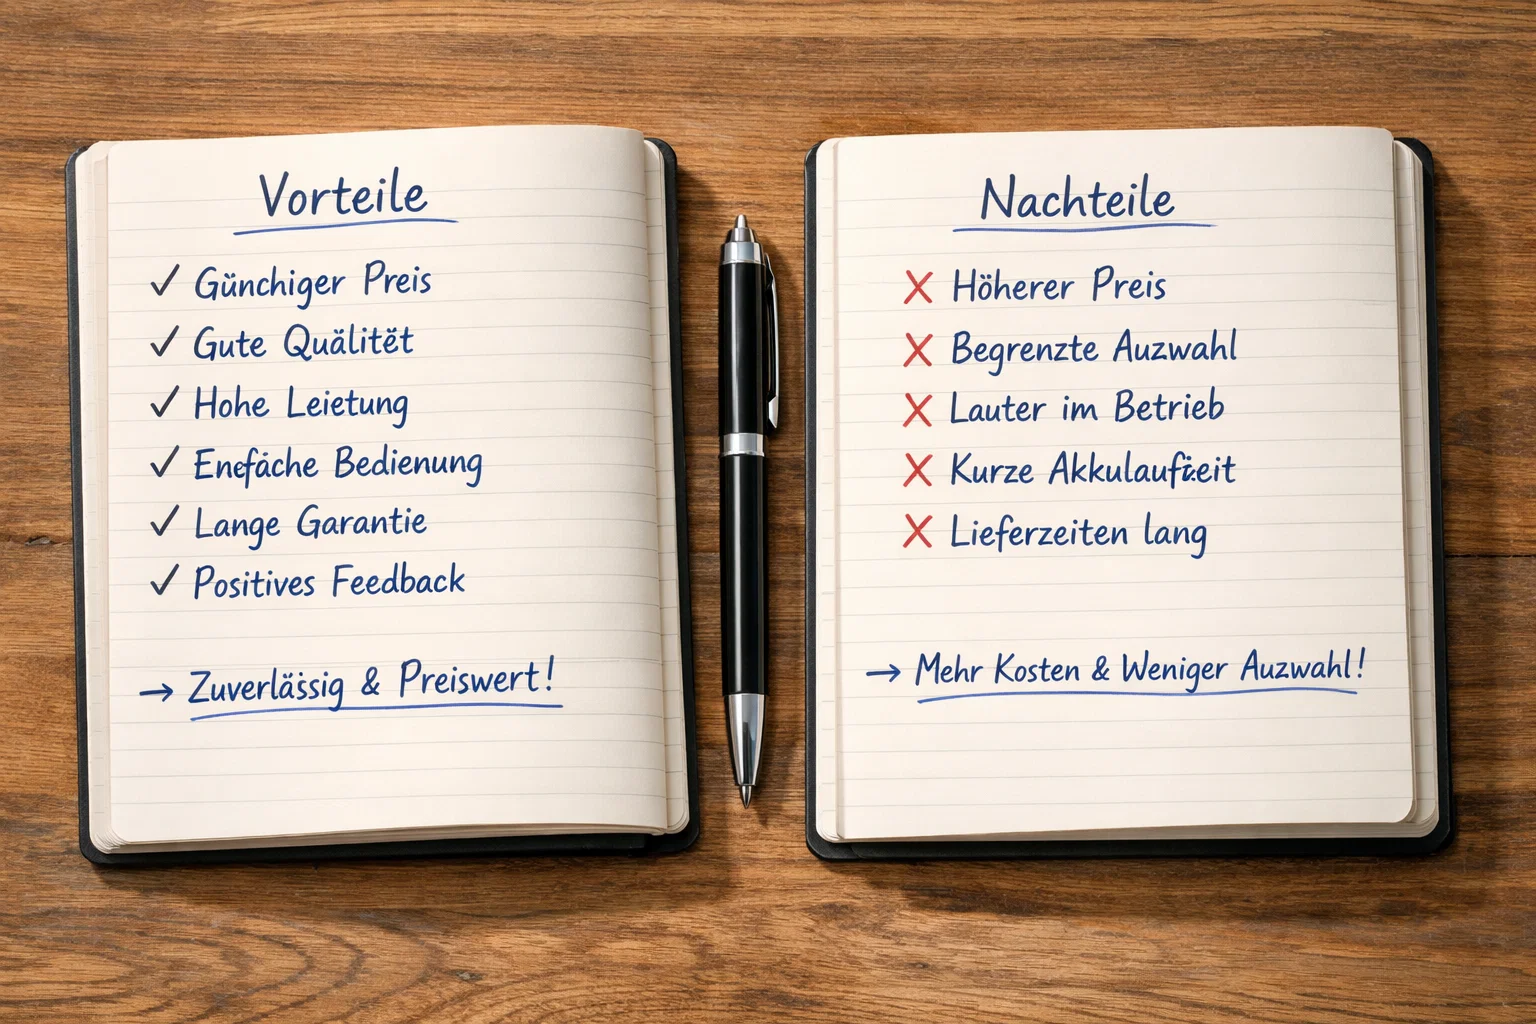 Vorteile
✓ Günchiger Preis
✓ Gute Quälitët
✓ Hohe Leietung
✓ Enefäche Bedienung
✓ Lange Garantie
✓ Positives Feedback
→ Zuverlässig & Preiswert!
Nachteile
✗ Höherer Preis
✗ Begrenzte Auzwahl
✗ Lauter im Betrieb
✗ Kurze
✗ Lieferzeiten lang
→ Mehr Kosten & Weniger Auzwahl!